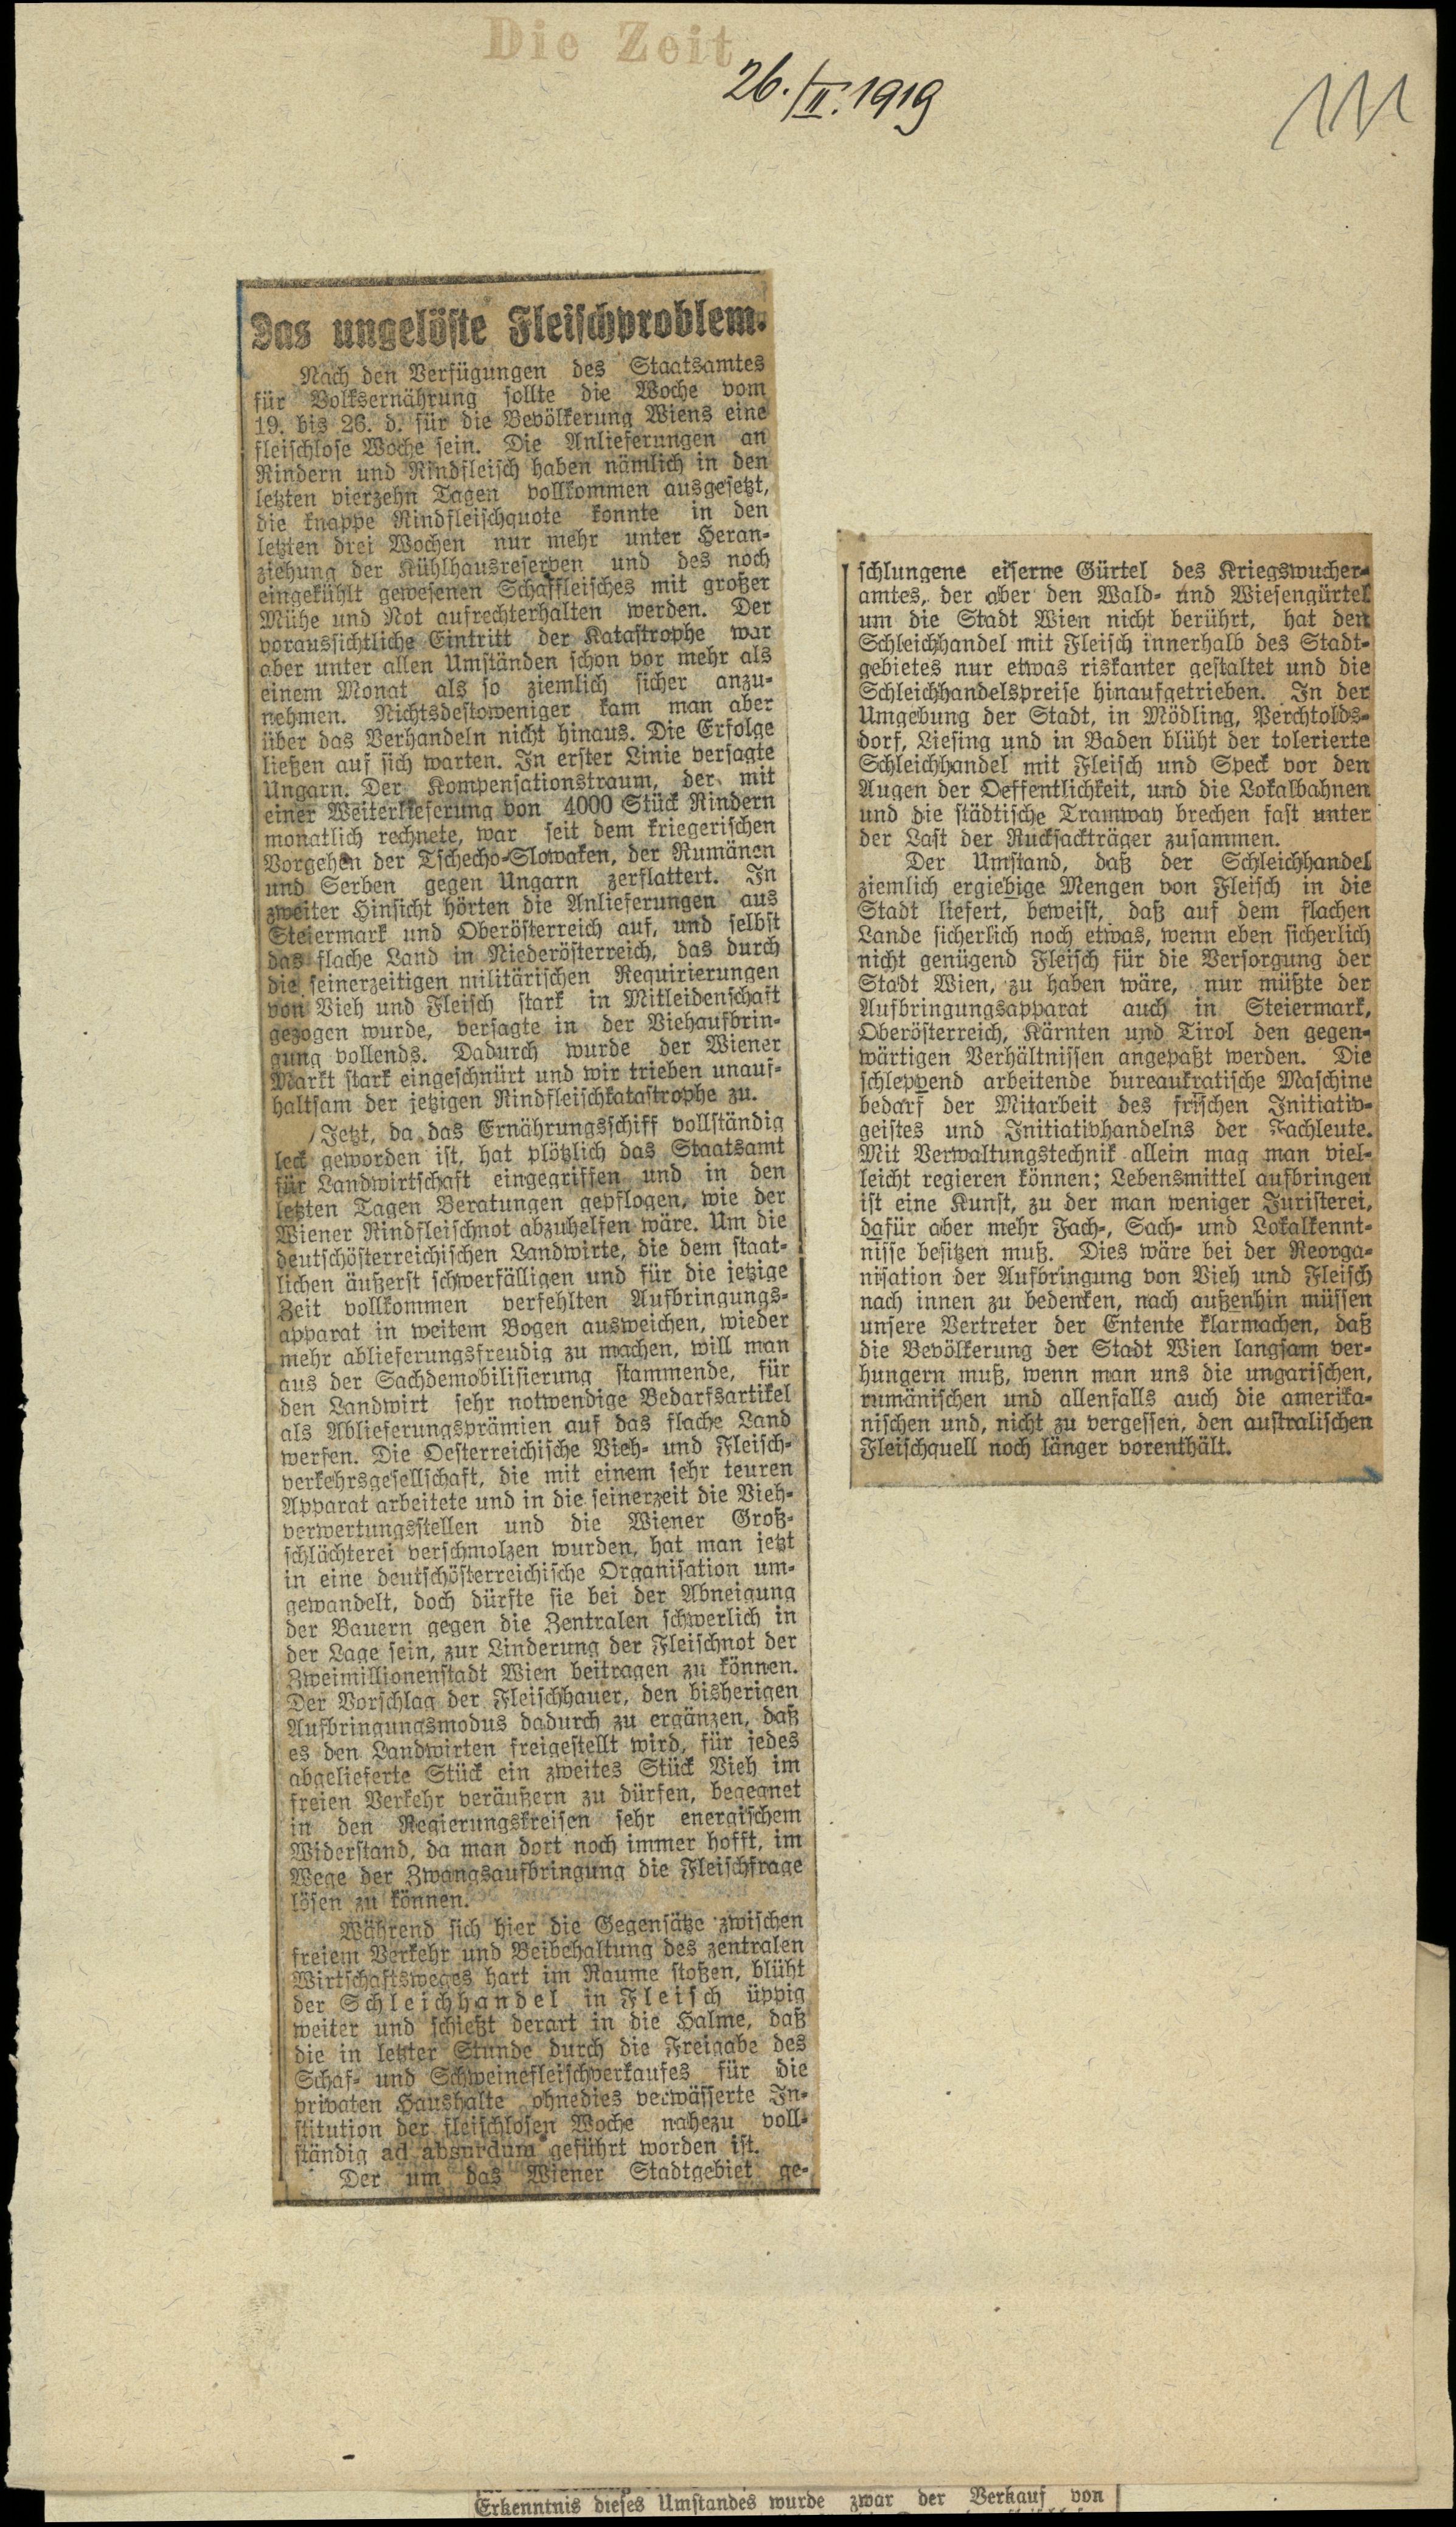 Die Zeit
26./II. 1919
Das ungelöste Fleischproblem.
Nach den Verfügungen des Staatsamtes
für Volksernährung sollte die Woche vom
19. bis 26. d. für die Bevölkerung Wiens eine
fleischlose Woche sein. Die Anlieferungen an
Rindern und Rindfleisch haben nämlich in den
letzten vierzehn Tagen vollkommen ausgesetzt,
die knappe Rindfleischquote konnte in den
letzten drei Wochen nur mehr unter Heran-
ziehung der Kühlhausreserven und des noch
eingekühlt gewesenen Schaffleisches mit großer
Mühe und Not aufrechterhalten werden. Der
voraussichtliche Eintritt der Katastrophe war
aber unter allen Umständen schon vor mehr als
einem Monat als so ziemlich sicher anzu-
nehmen. Nichtsdestoweniger kam man aber
über das Verhandeln nicht hinaus. Die Erfolge
ließen auf sich warten. In erster Linie versagte
Ungarn. Der Kompensationstraum, der mit
einer Weiterlieferung von 4000 Stück Rindern
monatlich rechnete, war seit dem kriegerischen
Vorgehen der Tschecho-Slowaken, der Rumänen
und Serben gegen Ungarn zerflattert. In
zweiter Hinsicht hörten die Anlieferungen aus
Steiermark und Oberösterreich auf, und selbst
das flache Land in Niederösterreich, das durch
die seinerzeitigen militärischen Requirierungen
von Vieh und Fleisch stark in Mitleidenschaft
gezogen wurde, versagte in der Viehaufbrin-
gung vollends. Dadurch wurde der Wiener
Markt stark eingeschnürt und wir trieben unauf-
haltsam der jetzigen Rindfleischkatastrophe zu.
Jetzt, da das Ernährungsschiff vollständig
leck geworden ist, hat plötzlich das Staatsamt
für Landwirtschaft eingegriffen und in den
letzten Tagen Beratungen gepflogen, wie der
Wiener Rindfleischnot abzuhelfen wäre. Um die
deutschösterreichischen Landwirte, die dem staat-
lichen äußerst schwerfälligen und für die jetzige
Zeit vollkommen verfehlten Aufbringungs-
apparat in weitem Bogen ausweichen, wieder
mehr ablieferungsfreudig zu machen, will man
aus der Sachdemobilisierung stammende, für
den Landwirt sehr notwendige Bedarfsartikel
als Ablieferungsprämien auf das flache Land
werfen. Die Oesterreichische Vieh- und Fleisch-
verkehrsgesellschaft, die mit einem sehr teuren
Apparat arbeitete und in die seinerzeit die Vieh-
verwertungsstellen und die Wiener Groß-
schlächterei verschmolzen wurden, hat man jetzt
in eine deutschösterreichische Organisation um-
gewandelt, doch dürfte sie bei der Abneigung
der Bauern gegen die Zentralen schwerlich in
der Lage sein, zur Linderung der Fleischnot der
Zweimillionenstadt Wien beitragen zu können.
Der Vorschlag der Fleischhauer, den bisherigen
Aufbringungsmodus dadurch zu ergänzen, daß
es den Landwirten freigestellt wird, für jedes
abgelieferte Stück ein zweites Stück Vieh im
freien Verkehr veräußern zu dürfen, begegnet
in den Regierungskreisen sehr energischem
Widerstand, da man dort noch immer hofft, im
Wege der Zwangsaufbringung die Fleischfrage
lösen zu können.
Während sich hier die Gegensätze zwischen
freiem Verkehr und Beibehaltung des zentralen
Wirtschaftsweges hart im Raume stoßen, blüht
der Schleichhandel in Fleisch üppig
weiter und schießt derart in die Halme, daß
die in letzter Stunde durch die Freigabe des
Schaf- und Schweinefleischverkaufes für die
privaten Haushalte ohnedies verwässerte In-
stitution der fleischlosen Woche nahezu voll-
ständig ad absurdum geführt worden ist.
Der um das Wiener Stadtgebiet ge-
schlungene eiserne Gürtel des Kriegswucher-
amtes, der aber den Wald- und Wiesengürtel
um die Stadt Wien nicht berührt, hat den
Schleichhandel mit Fleisch innerhalb des Stadt-
gebietes nur etwas riskanter gestaltet und die
Schleichhandelspreise hinaufgetrieben. In der
Umgebung der Stadt, in Mödling, Perchtolds-
dorf, Liesing und in Baden blüht der tolerierte
Schleichhandel mit Fleisch und Speck vor den
Augen der Oeffentlichkeit, und die Lokalbahnen
und die städtische Tramway brechen fast unter
der Last der Rucksackträger zusammen.
Der Umstand, daß der Schleichhandel
ziemlich ergiebige Mengen von Fleisch in die
Stadt liefert, beweist, daß auf dem flachen
Lande sicherlich noch etwas, wenn eben sicherlich
nicht genügend Fleisch für die Versorgung der
Stadt Wien, zu haben wäre, nur müßte der
Aufbringungsapparat auch in Steiermark,
Oberösterreich, Kärnten und Tirol den gegen-
wärtigen Verhältnissen angepaßt werden. Die
schleppend arbeitende bureaukratische Maschine
bedarf der Mitarbeit des frischen Initiativ-
geistes und Initiativhandelns der Fachleute.
Mit Verwaltungstechnik allein mag man viel-
leicht regieren können; Lebensmittel aufbringen
ist eine Kunst, zu der man weniger Juristerei,
dafür aber mehr Fach-, Sach- und Lokalkennt-
nisse besitzen muß. Dies wäre bei der Reorga-
nisation der Aufbringung von Vieh und Fleisch
nach innen zu bedenken, nach außenhin müssen
unsere Vertreter der Entente klarmachen, daß
die Bevölkerung der Stadt Wien langsam ver-
hungern muß, wenn man uns die ungarischen,
rumänischen und allenfalls auch die amerika-
nischen und, nicht zu vergessen, den australischen
Fleischquell noch länger vorenthält.
Erkenntnis dieses Umstandes wurde zwar der Verkauf von